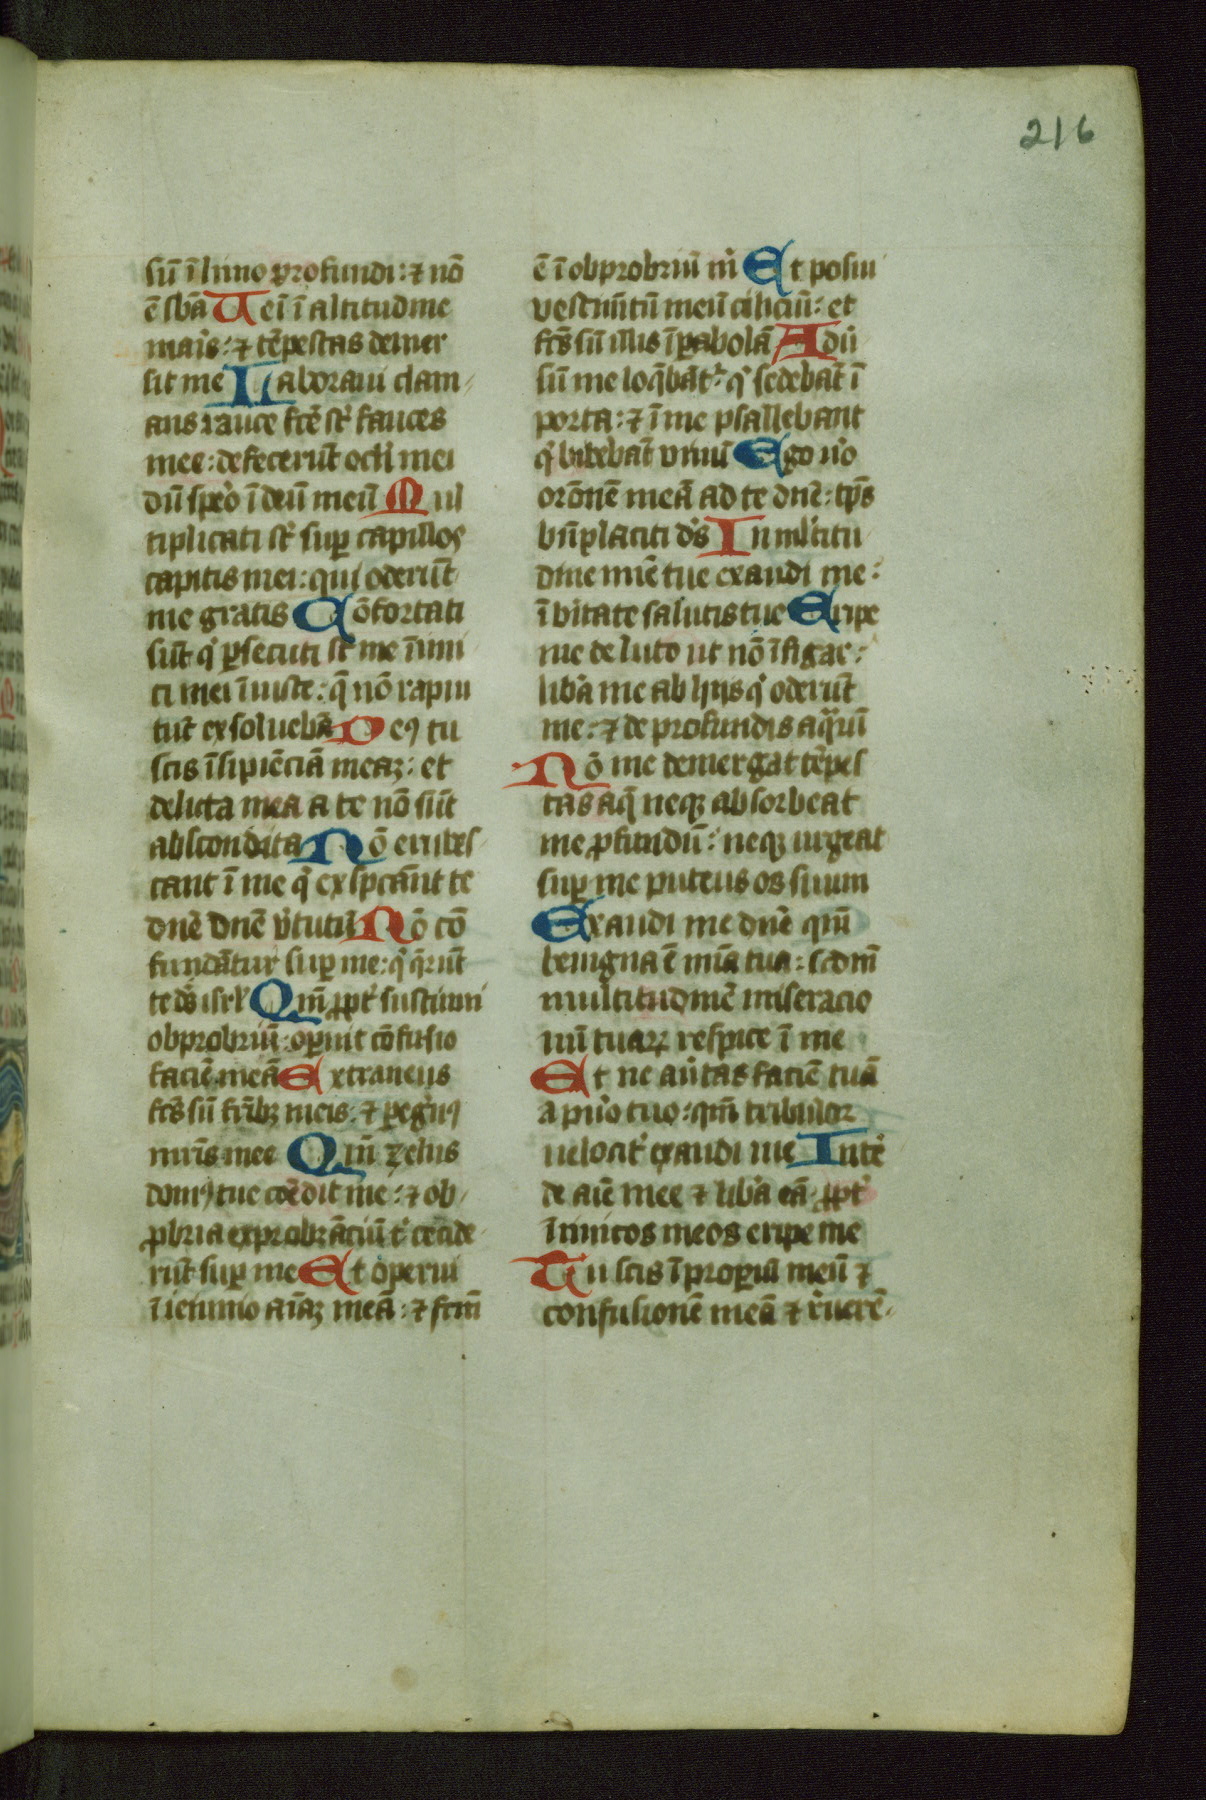 216
sū ī limo profundi: ⁊ nō
ē sbā Ueī ī altitudine
maīs: ⁊ tēpestas demer
sit me Laboraui clam
ans rauce fcē sr̄ fauces
mee: defecerūt oc̄li mei
dū spero ī deū meū Mul
tiplicati sr̄ suꝑ capillos
capitis mei: qui oderūt
me gratis Cōfortati
sūt q̇ ꝑsecuti sr̄ me īimi
ci mei īiuste: q̄ nō rapiu
tūc exsoluebā Deꝰ tu
scis īsipiēciā meaꝫ: et
delicta mea a te nō sūt
abscondita Nō erubes
cant ī me q̇ exspectāt te
dn̄e dn̄e v̄tutū Nō cō
fundātur suꝑ me: q̇ q̄rūt
te dꝰs isrl̄ Qm̄ ꝓpt̄ sustinui
obprobriū: oꝑuit cōfusio
faciē meā Extraneus
fcs̄ sū fr̄ibꝫ meis: ⁊ ꝑegr̄nꝰ
mr̄is mee Qm̄ zelus
domꝰ tue comedit me: ⁊ ob
ꝓbria exprobrāciū t̄ cecide
rūt suꝑ me Et operui
ī ieiunio aīaꝫ meā: ⁊ fcm̄
ē ī obprobriū m̄ Et posui
vestimētū meū ciliciū: et
fcs̄ sū illis ī ꝑabolā Aduer
sū me loq̄bāt̄: q̇ sedebāt ī
porta: ⁊ ī me psallebant
q̇ bibebāt vinū Ego vo
orōnē meā ad te dn̄e: tp̄s
bn̄placiti dꝰs In ml̄titu
dine mīe tue exaudi me:
ī v̄itate salutis tue Eripe
me de luto ut nō īfigar:
libā me ab hijs q̇ oderūt
me: ⁊ de profundis aquaꝝ
Nō me demergat tēpes
tas aq̄ neqꝫ absorbeat
me ꝓfundū: neqꝫ urgeat
suꝑ me puteus os suum
Exaudi me dn̄e qm̄
benigna ē mīa tua: scdm̄
multitudinē miseracio
nū tuaꝝ respice ī me
Et ne au̇tas faciē tuā
a pu̇o tuo: qm̄ tribulor
uelocit̄ exaudi me Intē
de aīe mee ⁊ libā eā ꝓpt̄
īimicos meos eripe me
Tu scis īproꝑiū meū ⁊
confusionē meā ⁊ r̄uerē